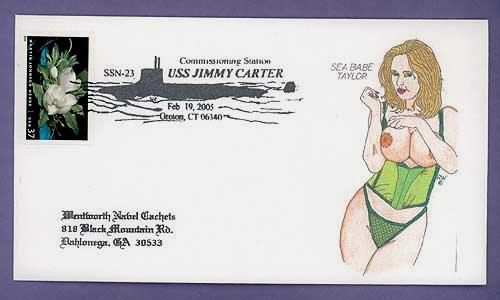 MARTIN JOHNSON HEADE
USA 37
Commissioning Station
SSN-23
USS JIMMY CARTER
Feb 19, 2005
Groton, CT 06340
SEA BABE
TAYLOR
RW
Wentworth Navel Cachets
818 Black Mountain Rd.
Dahlonega, GA 30533